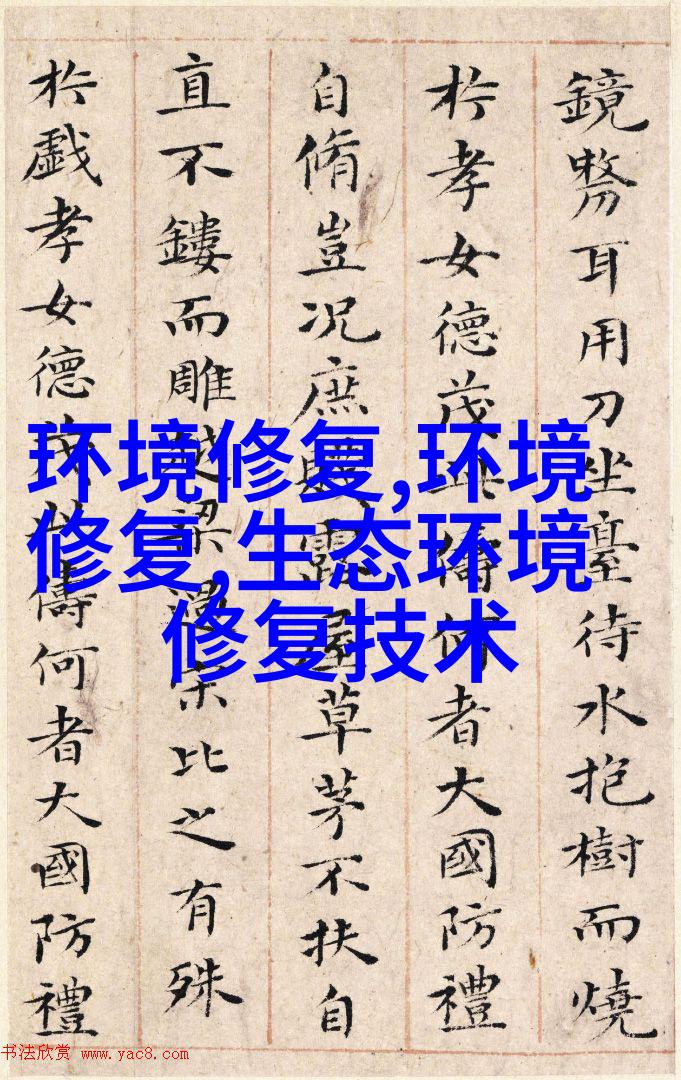 鏡剺耳用刀坐臺待水抱樹而燒
於孝女德茂此儔何者大國防禮
自脩豈况庶賤露屋草茅不扶自
直不鏤而雕越梁過宋比之有殊
於戲孝女德茂此儔何者大國防禮
环境修复,环境
修复,生态环境
修复技术
书法欣赏 www.yac8.com